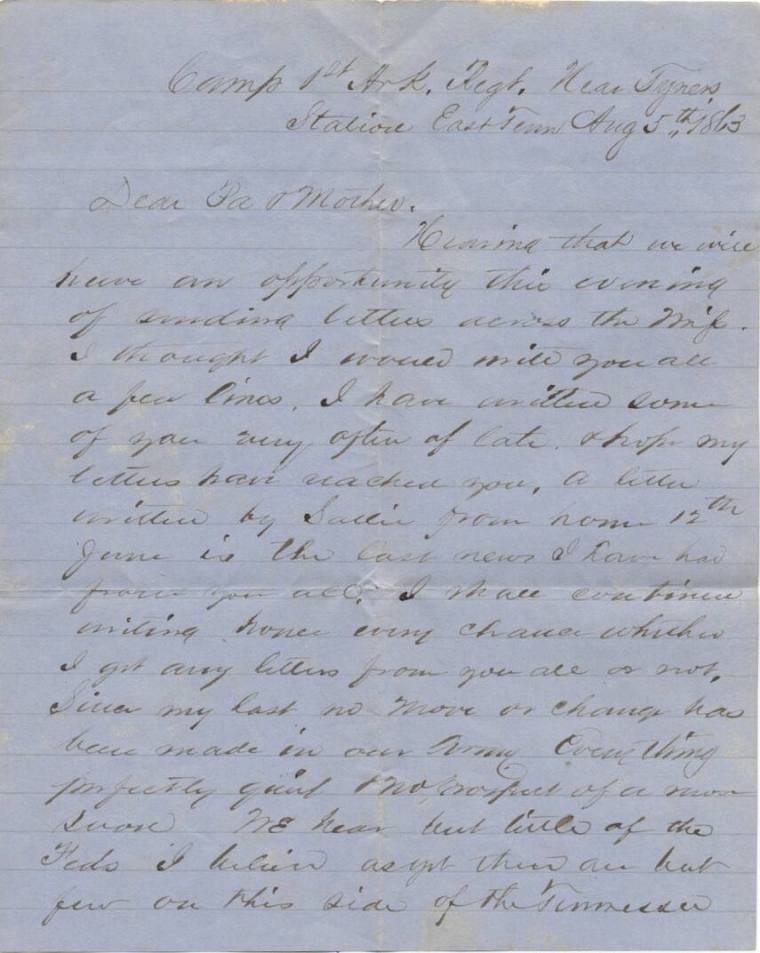 Camp 1st Ark. Regt. Near Tyners
Station East Tenn Aug 5th, 1863
Dear Pa & Mother.
Hearing that we will
have an opportunity this evening
of sending letters across the Miss.
I thought I would write you all
a few lines. I have written some
of you very often of late. & hope my
letters have reached you, A letter
written by Sallie from home 12th
June is the last news I have had
from you all. I shall continue
writing home every chance whether
I get any letters from you all or not.
Since my last no move or change has
been made in our Army Everything
perfectly quiet & no prospect of a move
soon We hear but little of the
Feds I believe as yet there are but
few on this side of the Tennessee